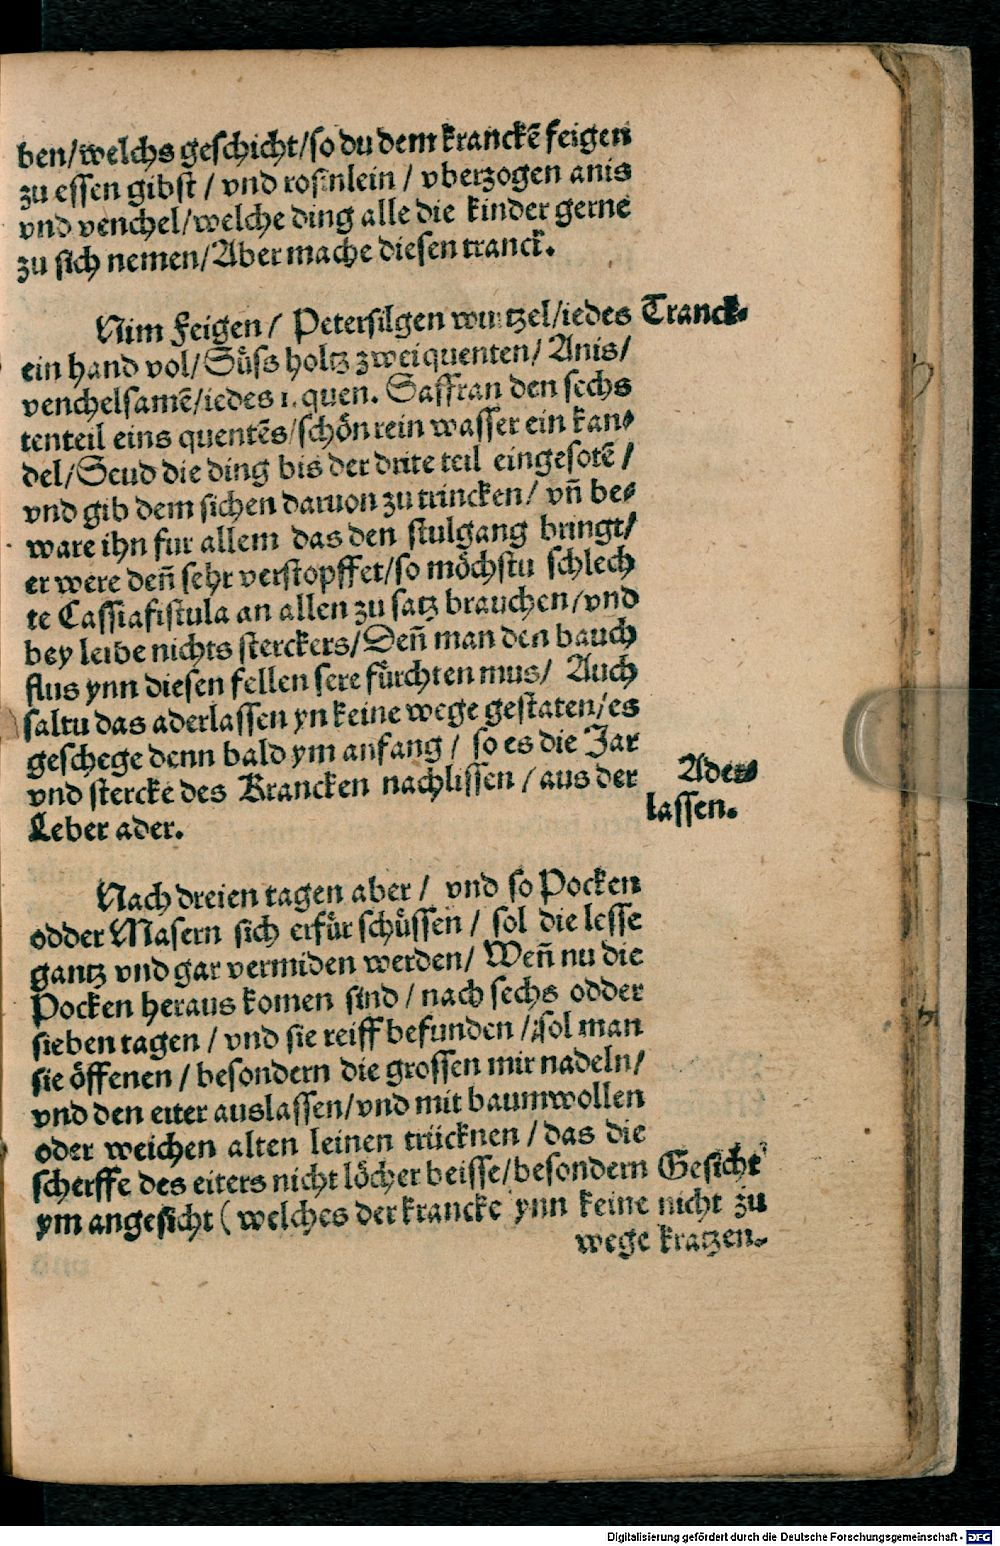 ben/welchs geschicht/so du dem kranckẽ feigen
zu essen gibst / vnd rosinlein / vberzogen anis
vnd venchel/welche ding alle die kinder gerne
zu sich nemen/Aber mache diesen tranck.
Nim Feigen/ Petersilgen wurtzel/iedes
Tranck.
ein hand vol/Süss holtz zwei quenten/ Anis/
venchelsamẽ/iedes i. quen. Saffran den sechs
tenteil eins quentẽs/schön rein wasser ein kan⸗
del/Seud die ding bis der drite teil eingesotẽ /
vnd gib dem sichen daruon zu trincken/ vñ be⸗
ware ihn fur allem das den stulgang bringt/
er were deñ sehr verstopffet/so möchstu schlech
te Cassiafistula an allen zu satz brauchen/vnd
bey leibe nichts sterckers/Deñ man den bauch
flus ynn diesen fellen sere fürchten mus/ Auch
saltu das aderlassen yn keine wege gestaten/es
geschege denn bald ym anfang / so es die Jar
vnd stercke des Krancken nachlissen / aus der
Leber ader.
Ader⸗
lassen.
Nach dreien tagen aber / vnd so Pocken
odder Masern sich erfür schüssen / sol die lesse
gantz vnd gar vermiden werden/ Weñ nu die
Pocken heraus komen sind / nach sechs odder
sieben tagen / vnd sie reiff befunden / sol man
sie öffenen / besondern die grossen mit nadeln/
vnd den eiter auslassen/vnd mit baumwollen
oder weichen alten leinen trücknen / das die
scherffe des eiters nicht löcher beisse/besondern
ym angesicht ( welches der krancke ynn keine
wege
Gesicht
nicht zu
kratzen.
Digitalisierung gefördert durch die Deutsche Forschungsgemeinschaft - DFG